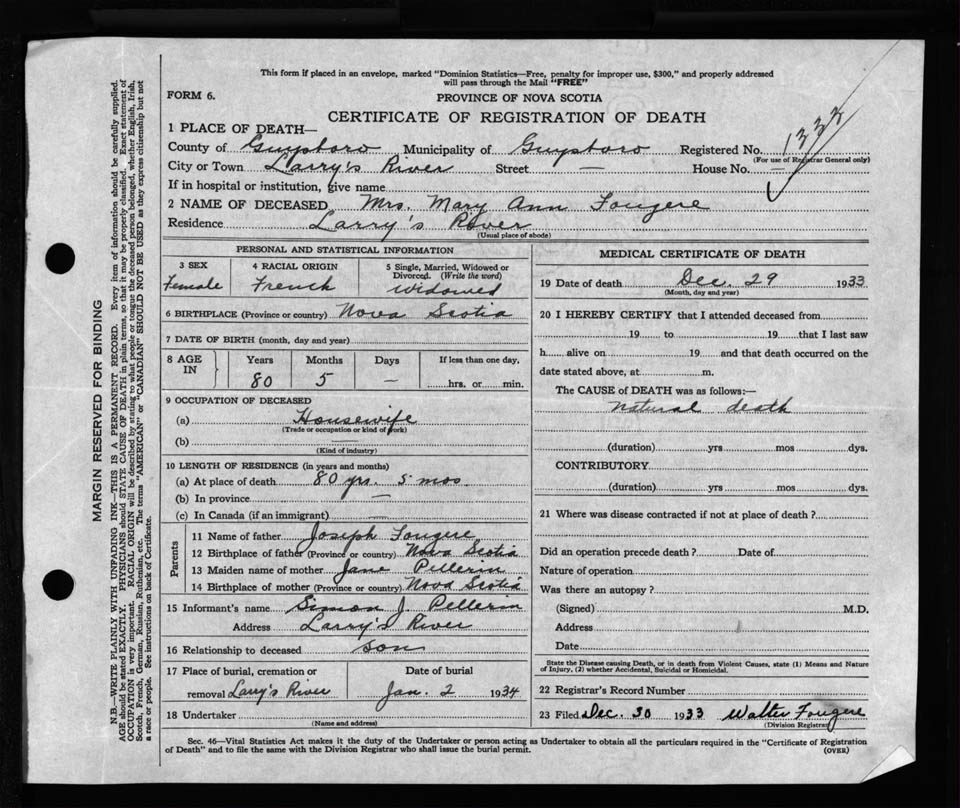 This form if placed in an envelope, marked "Dominion Statistics—Free, penalty for improper use, $300," and properly addressed
will pass through the Mail "FREE"
FORM 6.
PROVINCE OF NOVA SCOTIA
CERTIFICATE OF REGISTRATION OF DEATH
1 PLACE OF DEATH—
County of Guysboro Municipality of Guysboro Registered No. 1332
(For use of Registrar General only)
City or Town Larry's River Street — House No. —
If in hospital or institution, give name
2 NAME OF DECEASED Mrs. Mary Ann Fougere
Residence Larry's River
(Usual place of abode)
PERSONAL AND STATISTICAL INFORMATION
3 SEX
Female
4 RACIAL ORIGIN
French
5 Single, Married, Widowed or
Divorced. (Write the word)
Widowed
6 BIRTHPLACE (Province or country) Nova Scotia
7 DATE OF BIRTH (month, day and year)
8 AGE IN
Years Months Days If less than one day,
80 5 — hrs. or min.
9 OCCUPATION OF DECEASED
(a) Housewife
(Trade or occupation or kind of work)
(b) —
(Kind of industry)
10 LENGTH OF RESIDENCE (in years and months)
(a) At place of death 80 yrs. 5 mos.
(b) In province —
(c) In Canada (if an immigrant) —
Parents
11 Name of father Joseph Fougere
12 Birthplace of father (Province or country) Nova Scotia
13 Maiden name of mother Jane Pellerin
14 Birthplace of mother (Province or country) Nova Scotia
15 Informant's name Simon J. Pellerin
Address Larry's River
16 Relationship to deceased son
17 Place of burial, cremation or Date of burial
removal Larry's River Jan. 2 1934
18 Undertaker
(Name and address)
MEDICAL CERTIFICATE OF DEATH
19 Date of death Dec. 29 1933
(Month, day and year)
20 I HEREBY CERTIFY that I attended deceased from
19 to 19 that I last saw
h alive on 19 and that death occurred on the
date stated above, at m.
The CAUSE of DEATH was as follows:—
natural death
(duration) yrs mos dys.
CONTRIBUTORY
(duration) yrs mos dys.
21 Where was disease contracted if not at place of death?
Did an operation precede death? Date of
Nature of operation
Was there an autopsy?
(Signed) M.D.
Address
Date
State the Disease causing Death, or in death from Violent Causes, state (1) Means and Nature
of Injury, (2) whether Accidental, Suicidal or Homicidal.
22 Registrar's Record Number
23 Filed Dec. 30 1933 Walter Fougere
(Division Registrar)
Sec. 46—Vital Statistics Act makes it the duty of the Undertaker or person acting as Undertaker to obtain all the particulars required in the "Certificate of Registration
of Death" and to file the same with the Division Registrar who shall issue the burial permit.
(OVER)
MARGIN RESERVED FOR BINDING
N.B.—WRITE PLAINLY WITH UNFADING INK—THIS IS A PERMANENT RECORD. Every item of information should be carefully supplied.
AGE should be stated EXACTLY. PHYSICIANS should STATE CAUSE OF DEATH in plain terms, so that it may be properly classified. Exact statement of
OCCUPATION is very important. RACIAL ORIGIN will be described by stating to what people or tongue the deceased person belonged, whether English, Irish,
Scotch, French, German, Russian, Ruthenian, etc. The terms "AMERICAN" or "CANADIAN" SHOULD NOT BE USED as they express citizenship but not
a race or people. See instructions on back of Certificate.